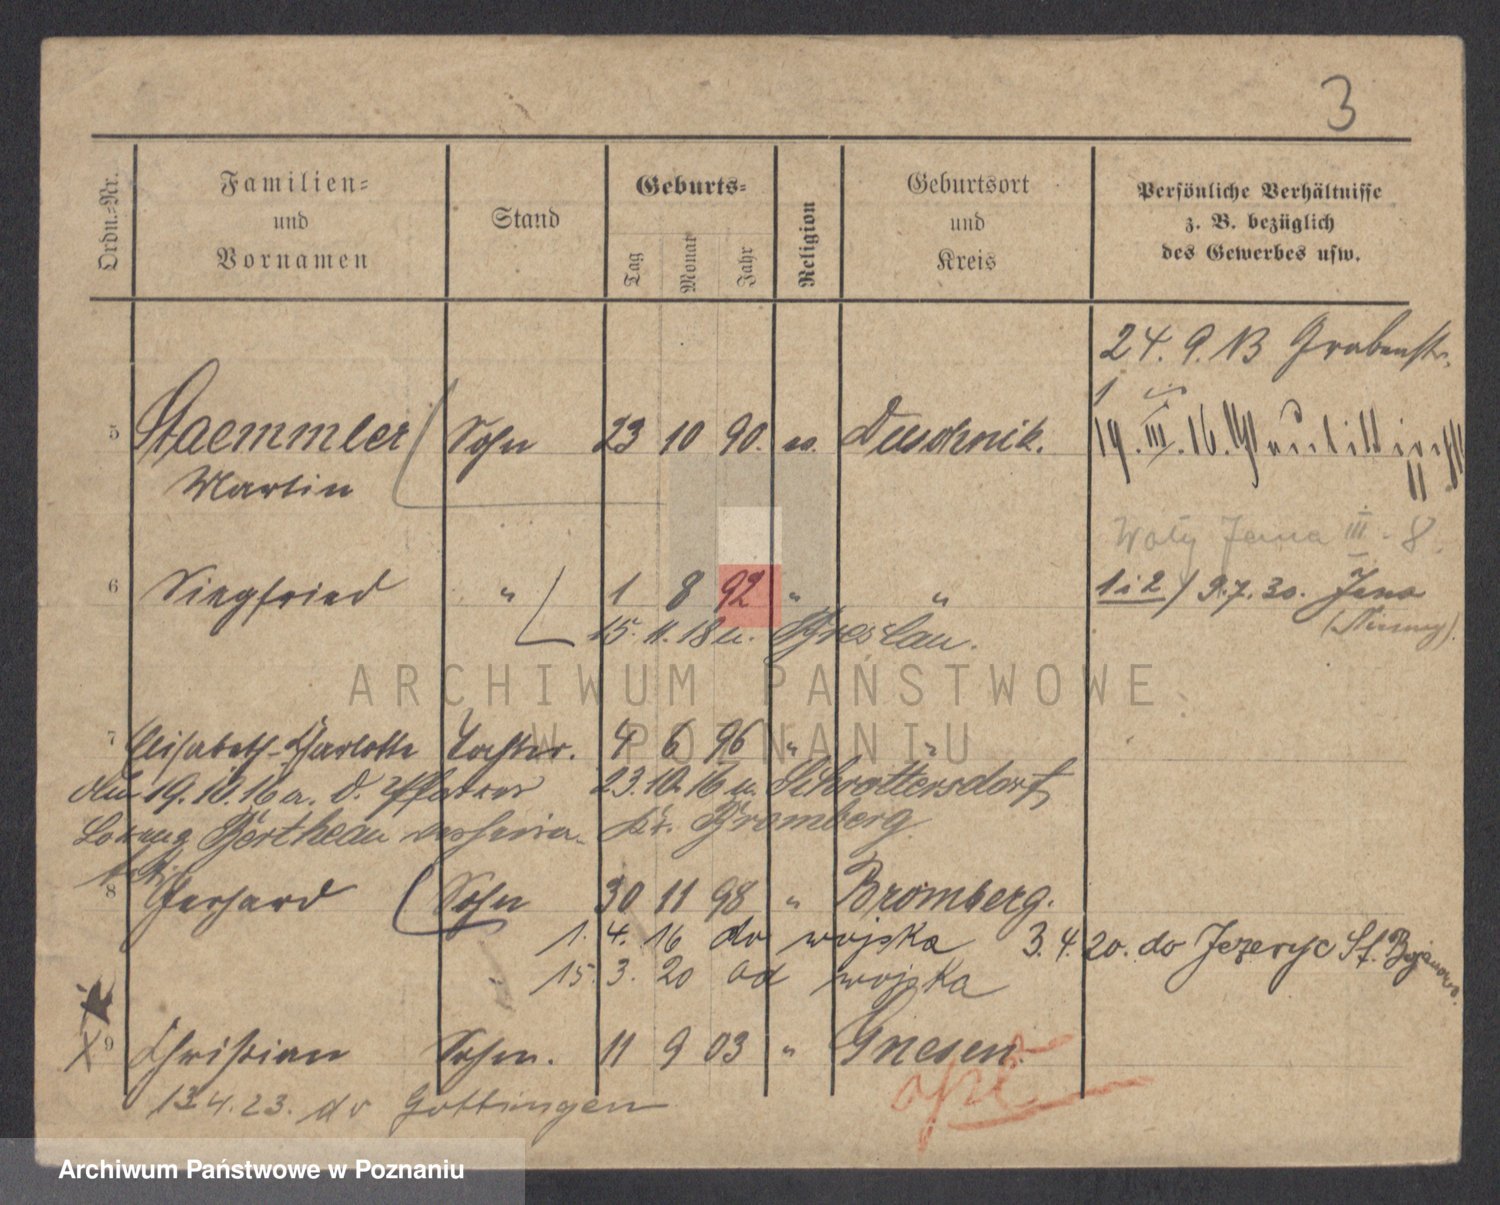 3
Ordn.-Nr.
Familien-
und
Vornamen
Stand
Geburts-
Tag
Monat
Jahr
Religion
Geburtsort
und
Kreis
Persönliche Verhältnisse
z. B. bezüglich
des Gewerbes usw.
24. 9. 13 Grabenstr.
5 Staemmler Sohn 23 10 90. ev. Duschnik. 19. III. 16.
Martin
Jena III - 8.
6 Siegfried " 1 8 92 " " 1 i 2 / 9.7.30. Jena
15. 11. 18 n. Breslau.
ARCHIWUM PAŃSTWOWE
W POZNANIU
7 Elisabeth-Charlotte Tochter. 4 6 96 " "
19. 10. 16 a. d. Pfarrer 23. 10. 16 n. Schröttersdorf
Bertheau Kr. Bromberg
8 Gerhard Sohn 30 11 98 " Bromberg.
1. 4. 16 do wojska 3. 4. 20. do Jezeryc St.
15. 3. 20 od wojska
X 9 Christian Sohn. 11 9 03 " Gnesen.
13.4.23. do Gottingen
Archiwum Państwowe w Poznaniu